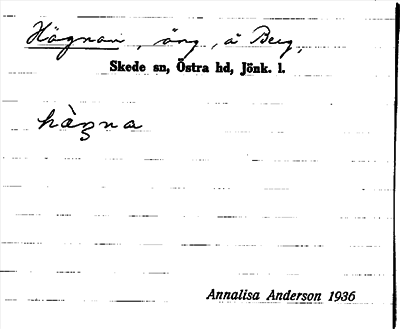 Hägnan, äng, å Berg,
Skede sn, Östra hd, Jönk. l.
hàgna
Annalisa Anderson 1936